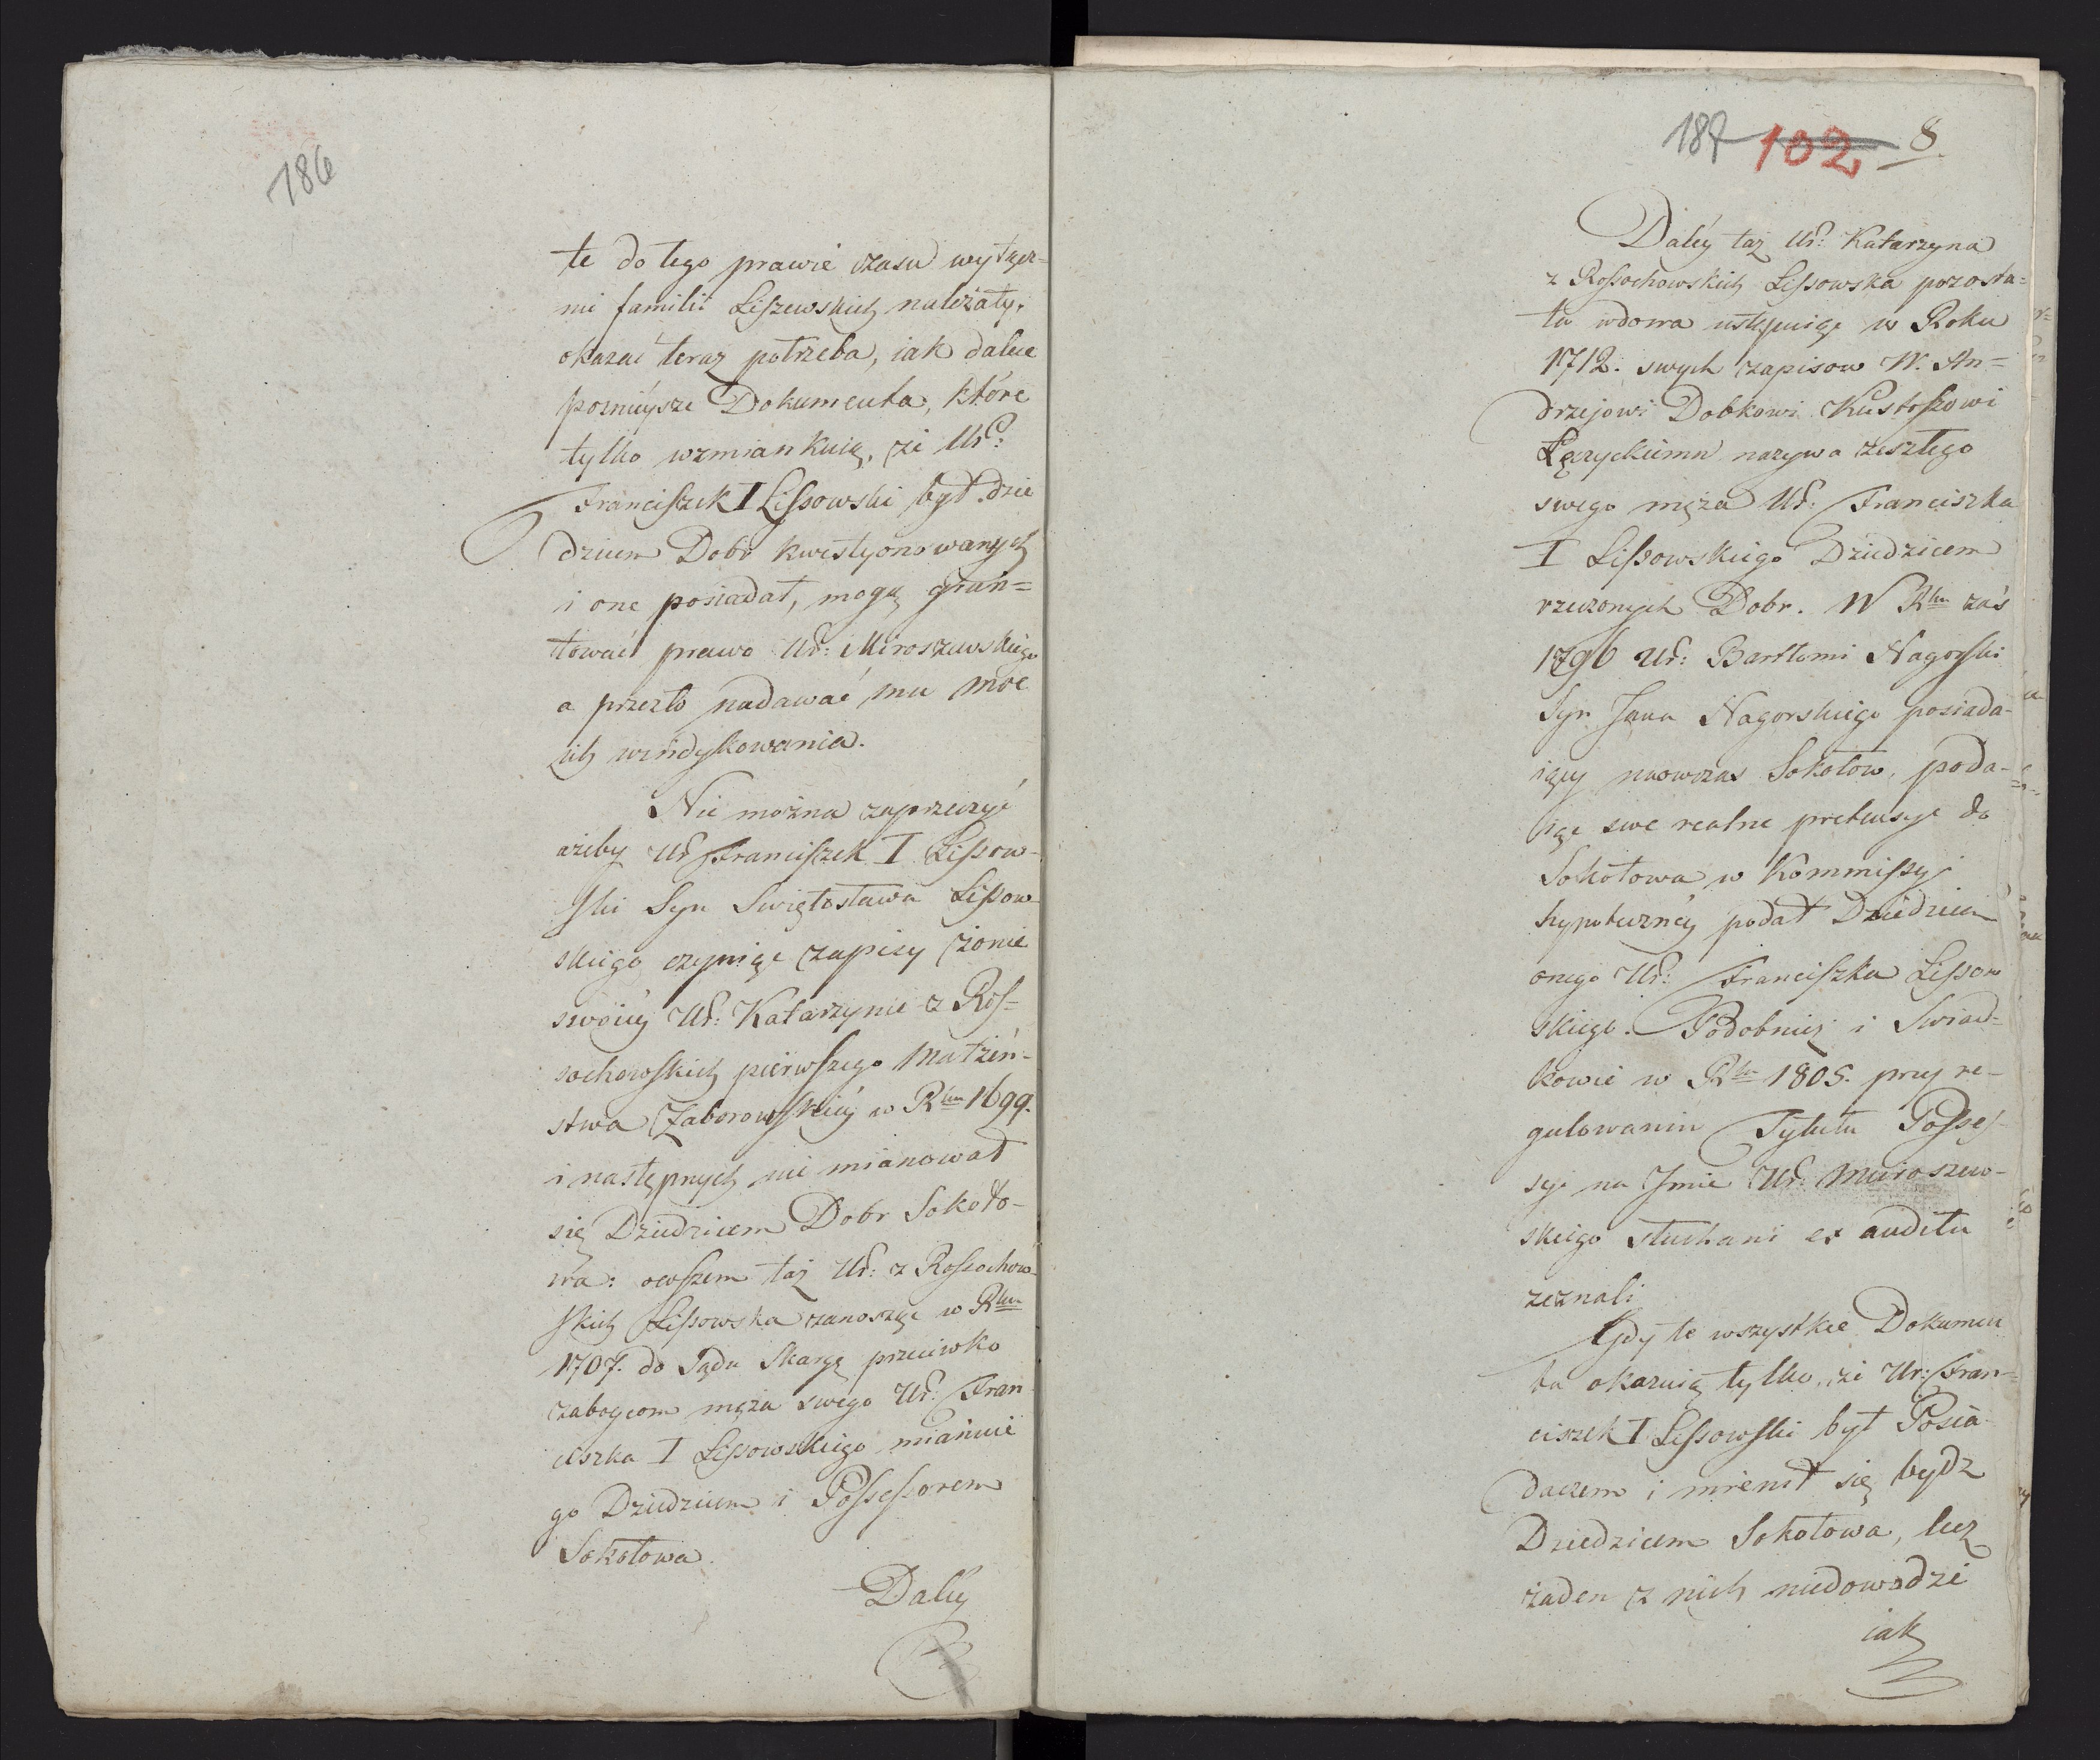 186
te do tego prawie czasu wyłącz=
nie familii Liszewskich należały.
okazać teraz potrzeba, iak dalece
poznieysze Dokumenta, które
tylko wzmiankuią, że Ur:
Franciszek I Lissowski był dzie
dzicem Dobr kwestyonowanych
i one posiadał, mogą grun=
tować prawo Ur: Miroszewskiego
a przezto nadawać mu moc
ich windykowania.
Nie można zaprzeczyć
ażeby Ur Franciszek I Lissow-
ski Syn Swiętosława Lissow-
skiego czyniąc zapisy żonie
swoiey Ur: Katarzynie z Ros=
sochowskich pierwszego Małżeń-
stwa Zaborowskiey w Rku 1699.
i następnych nie mianował
się Dziedzicem Dobr Sokoło-
wa: owszem taż Ur: z Rossochow-
skich Lissowska zanosząc w Rku
1707. do Sądu Skargę przeciwko
zaboycom męża swego Ur: Fran
ciszka I Lissowskiego mianuie
go Dziedzicem i Possessorem
Sokołowa.
Daley
187 102 8
Daléy taż Ur: Katarzyna
z Rossochowskich Lissowska pozosta=
ła wdowa ustępuiąc w Roku
1712. swych zapisow W. An=
drzejowi Dobkowi Kustoszowi
Łęczyckiemu nazywa zeszłego
swego męża Ur: Franciszka
I Lissowskiego Dziedzicem
rzeczonych Dobr. W Rku zaś
1796 Ur: Bartłomi Nagorski
Syn Jana Nagorskiego posiada-
iący naowczas Sokołow, poda-
iąc swe realne pretensye do
Sokołowa w Kommissyi
hypoteczney podał Dziedzicem
onego Ur: Franciszka Lissow
skiego. Podobnież i Swiad-
kowie w Rku 1805. przy re-
gulowaniu Tytułu Posses-
syi na Jmie Ur: Miroszew-
skiego słuchani ex auditu
zeznali
Gdy te wszystkie Dokumen
ta okazuią tylko, że Ur: Fran=
ciszek I Lissowski był Posia-
daczem i mienił się bydz
Dziedzicem Sokołowa, lecz
żaden z nich niedowodzi
iak